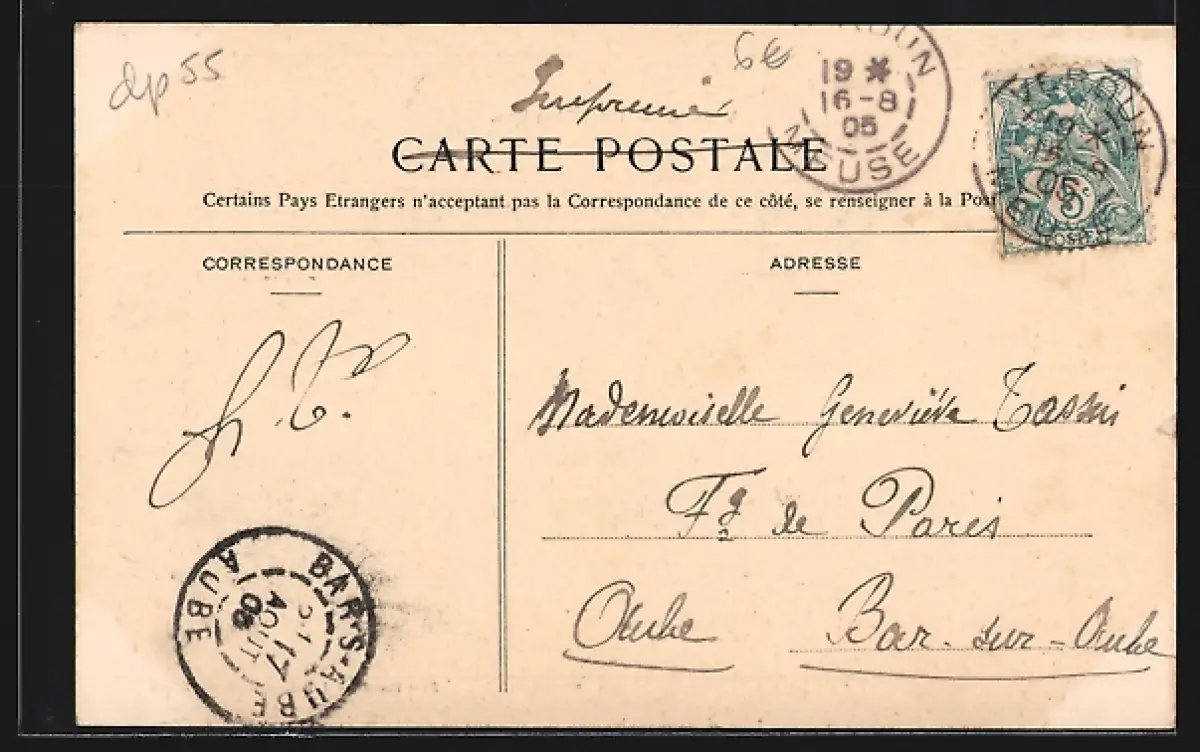 dp 55
6€
Imprimé
CARTE POSTALE
Certains Pays Etrangers n'acceptant pas la Correspondance de ce côté, se renseigner à la Pos
VERDUN
19 *
16-8
05
MEUSE
VERDUN
19 *
8
05
MEUSE
5
POSTES
CORRESPONDANCE
ADRESSE
Mademoiselle Geneviève Tassin
Fg de Paris
Aube Bar-sur-Aube
BAR-S-AUBE
17
AOUT
05
AUBE